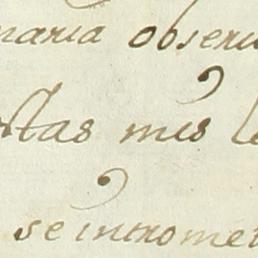 naria obseru
stas mis le
se intromet